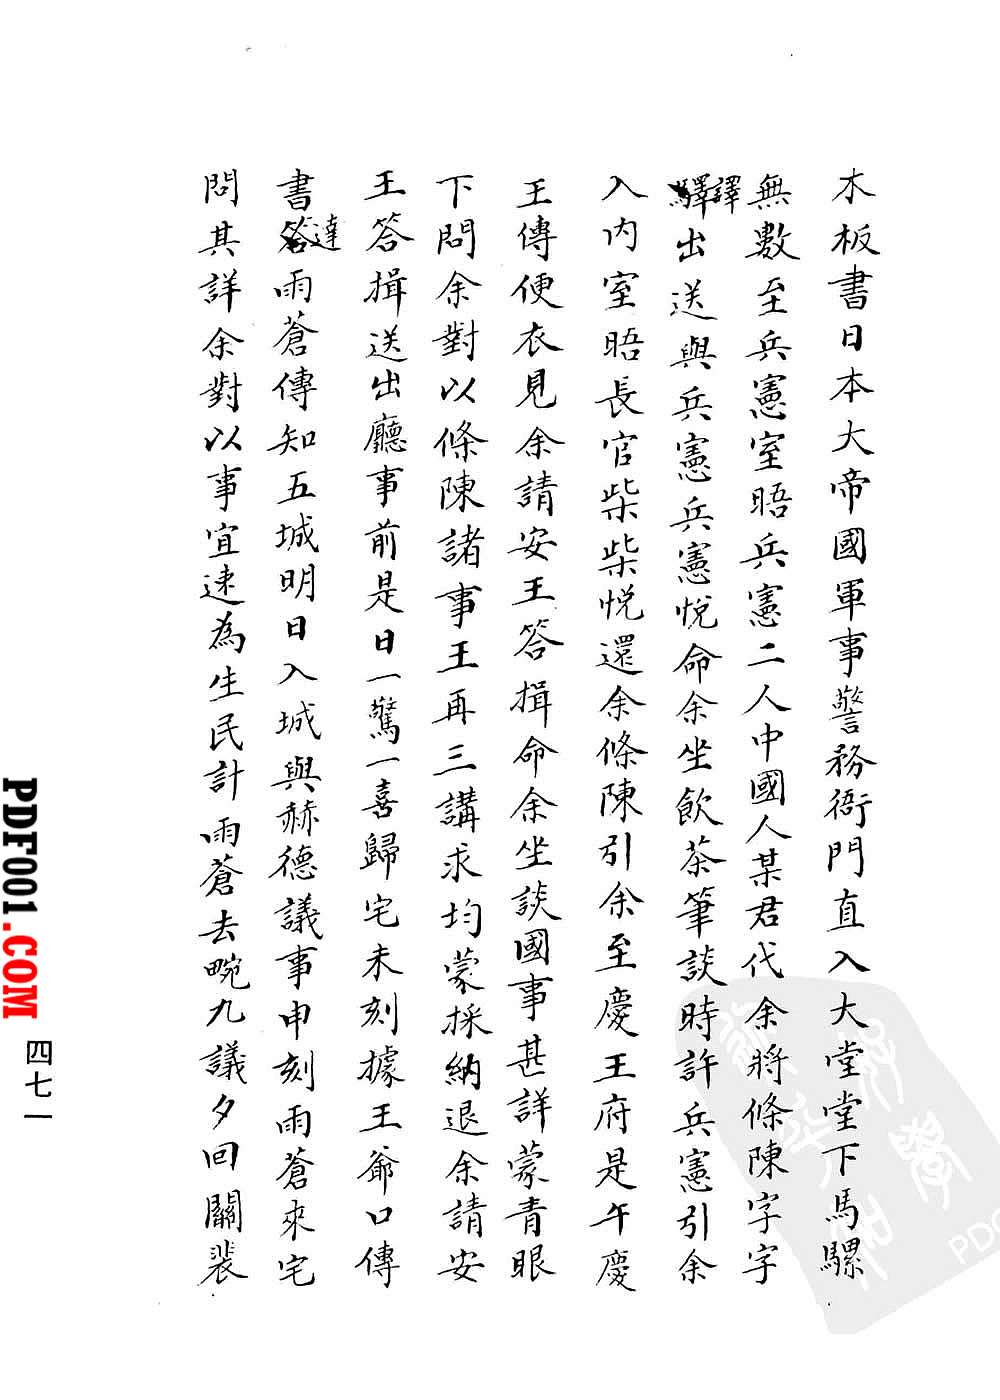 木板書日本大帝國軍事警務衙門直入大堂堂下馬騾
無數至兵憲室晤兵憲二人中國人某君代余將條陳字字
譯出送與兵憲兵憲悅命余坐飲茶筆談時許兵憲引余
入內室晤長官柴柴悅還余條陳引余至慶王府是午慶
王傳便衣見余請安王答揖命余坐談國事甚詳蒙青眼
下問余對以條陳諸事王再三講求均蒙採納退余請安
王答揖送出廳事前是日一驚一喜歸宅未刻據王爺口傳
書達雨蒼傳知五城明日入城與赫德議事申刻雨蒼來宅
問其詳余對以事宜速為生民計雨蒼去晼九議夕回關裴
PDF001.COM 四七一